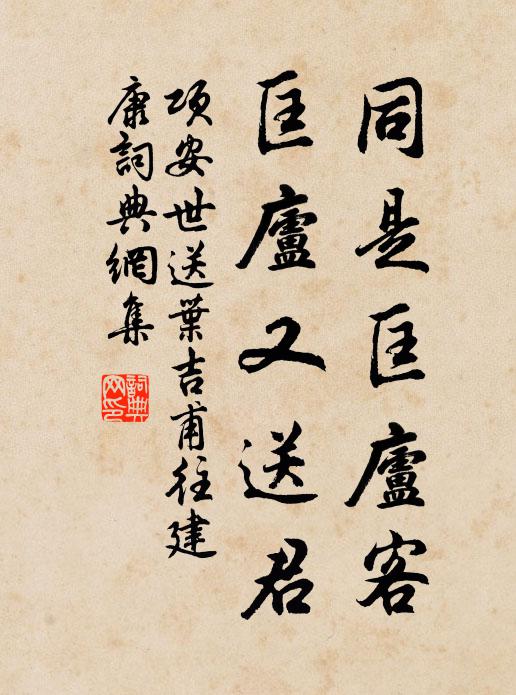 同是匡廬客
匡廬又送君
項安世送葉吉甫往建
康詞典網集
詞典
网印